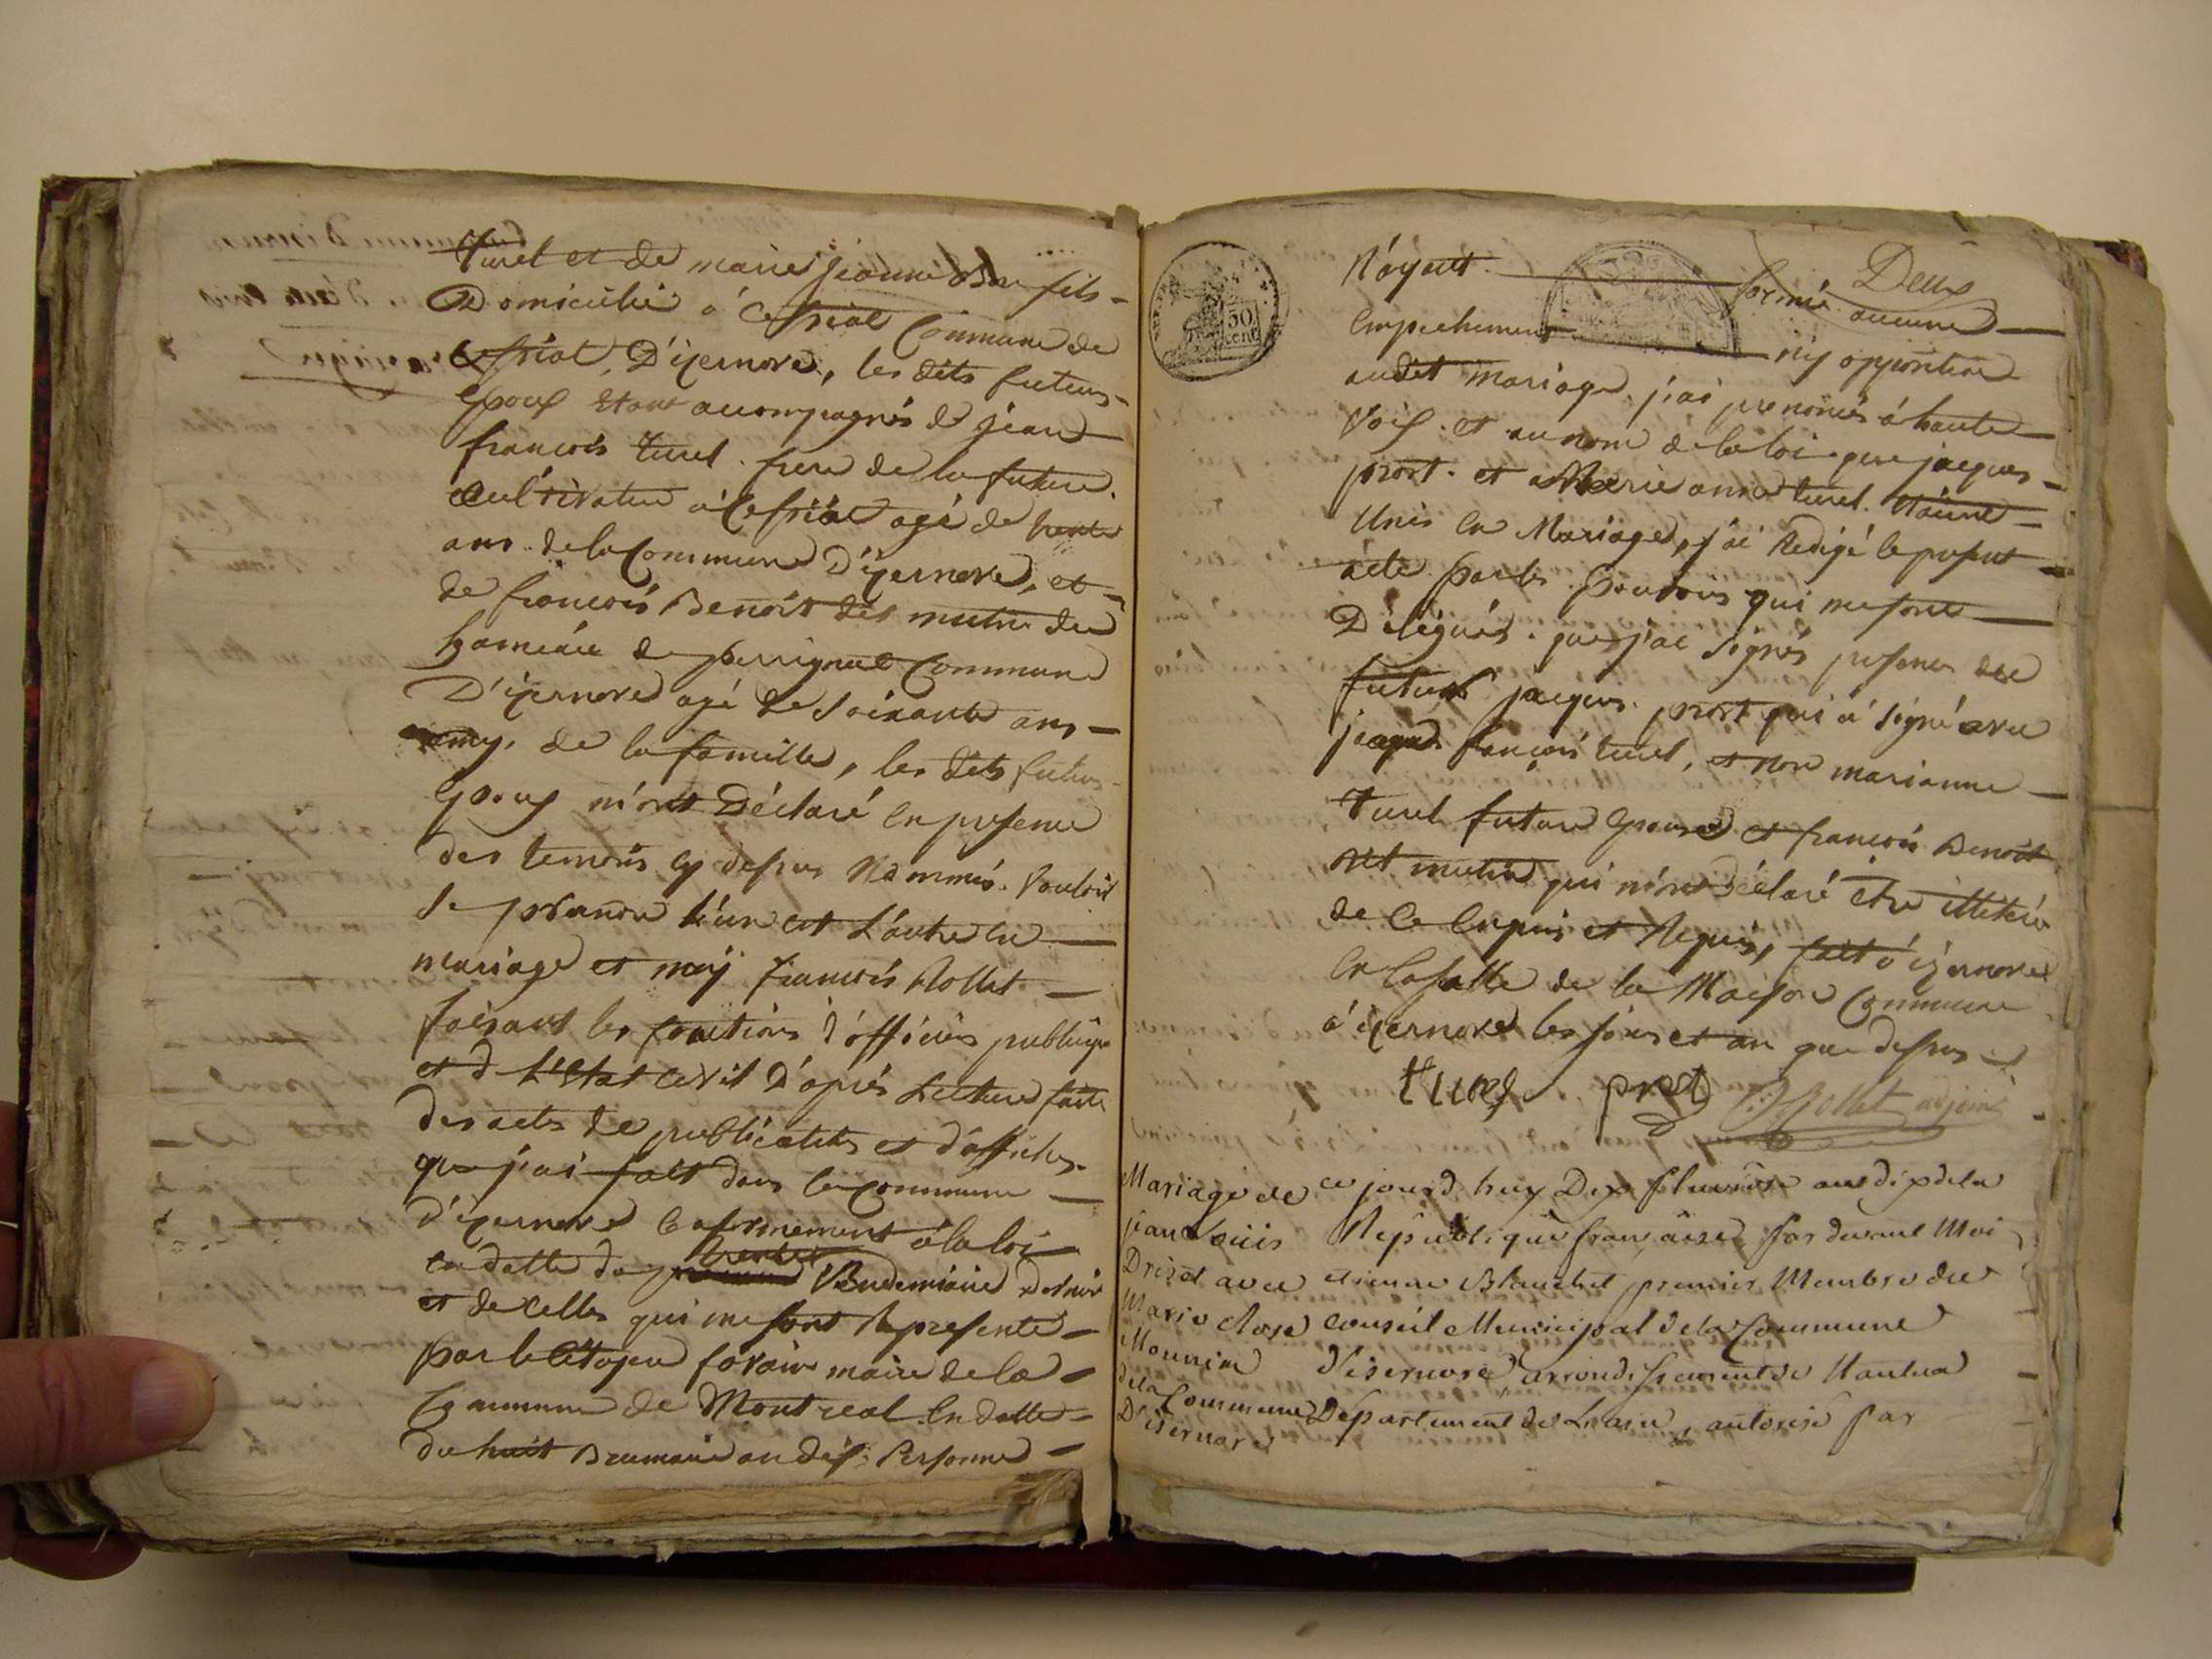 turel et de marie jeanne fils -
Domicilié à Cessiat Commune de
Cessiat, D'izernore, les dits futurs -
Epoux etant accompagnés de jean
francois turel frere de la future
Cultivateur à Cessiat agé de trente
ans de la Commune D'izernore, et -
de francois Benoit dit mutin du
hameau de perrignat Commune
D'izernore agé de soixante ans -
amy de la famille, les dits futurs
Epoux m'ont Déclaré en presence
des temoins cy dessus Nommés. Vouloir
se prandre L'un et L'autre en -
mariage et moy francois Rollet -
faisant les fonctions d'officiers publique
et d L'Etat Civil D'après Lecture faite
des acts de publications et d'affiches
que j'ai fait dans la Commune -
D'izernore Conformement à la loi
en datte du trente Vendemiaire dernier
et de celles qui me sont Représenté -
par le Citoyen maire de la -
Commune de Montreal en datte -
du huit Brumaire an dix. Personne -
30 cent
Deux
N'ayant formé aucune -
Empechement ny oppontion
audit mariage. j'ai prenoncés à haute
Voix. et au nom de la loi que jacques -
prost. et Marie anne turel. -
Unis en Mariage, j'ai Redigé le present -
acte par les pouvoirs qui me sont -
Délégués. que j'ai signés presence du
futur jacques. prost qui a signé avec
francois turel, et non marianne -
turel future Epouse et francois Benoit
dit mutin qui m'ont déclaré être illeteré
de ce Enquis et Requis, fait à izernore
en la salle de la Maison Commune
d'izernore les jour et an que dessus
turel. prost Rollet adjoint
Mariage de
jean Louis
Drizet avec
Marie Rose
Mounin
dela Commune
D'isernore
ce jourd huy Dix pluviose an dix de la
Republique française par devant Moi
etienne Blanchet premier Membre du
conseil Municipal de la Commune
d'isernore arrondissement de Nantua
Departement de Lain, autorisé par